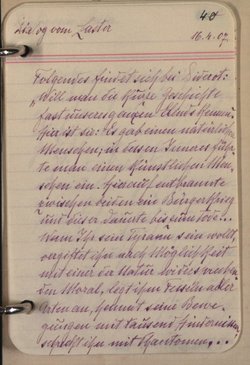 40
16.4.07.
Folgendes findet sich bei Diderot:
"Will man die kurze Geschichte
fast unseres ganzen Elends kennen?
Hier ist sie: Es gab einen natürlichen
Menschen; in dessen Inneres führ-
te man einen künstlichen Men-
schen ein. Hierauf entbrannte
zwischen beiden ein Bürgerkrieg
und dieser dauerte bis zum Tode...
Wenn Ihr sein Tyrann sein wollt,
vergiftet ihn nach Möglichkeit
mit einer der Natur
den Moral, legt ihm Fesseln aller
Arten an, hemmt seine Bewe-
gungen mit tausend Hindernissen,
schreckt ihn mit Phantomen...